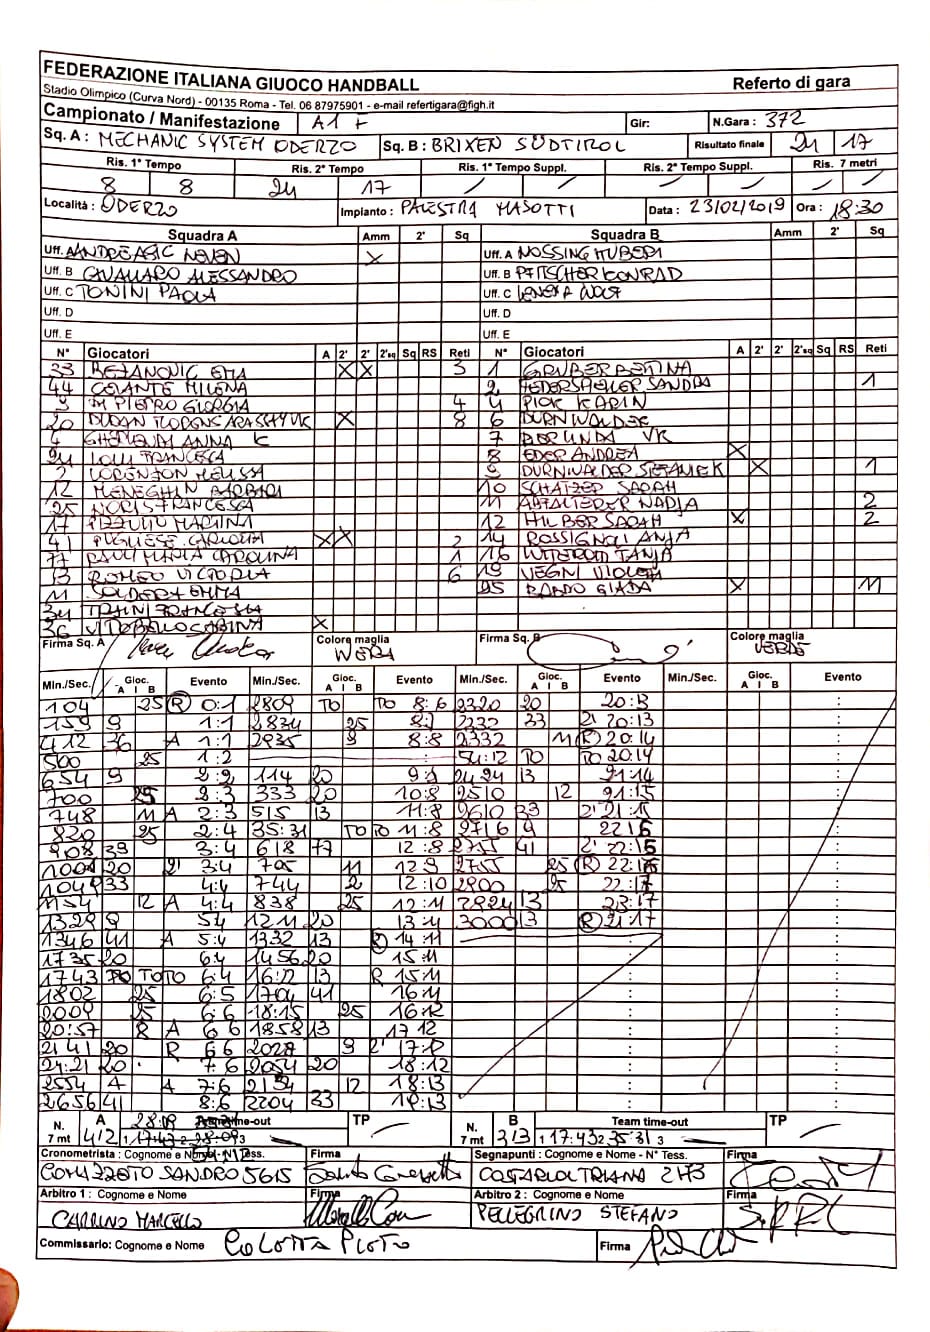 FEDERAZIONE ITALIANA GIUOCO HANDBALL
Referto di gara
Stadio Olimpico (Curva Nord) - 00135 Roma - Tel. 06 87975901 - e-mail refertigara@figh.it
Campionato / Manifestazione A1 F Gir: N.Gara: 372
Sq. A : MECHANIC SYSTEM ODERZO Sq. B : BRIXEN SÜDTIROL Risultato finale 24 17
Ris. 1° Tempo Ris. 2° Tempo Ris. 1° Tempo Suppl. Ris. 2° Tempo Suppl. Ris. 7 metri
8 8 24 17 / / / / / /
Località : ODERZO Impianto : PALESTRA MASOTTI Data : 23/02/2019 Ora : 18:30
Squadra A Amm 2' Sq Squadra B Amm 2' Sq
Uff. A X Uff. A
Uff. B CAVALLARO ALESSANDRO Uff. B KONRAD
Uff. C TONINI PAOLA Uff. C
Uff. D Uff. D
Uff. E Uff. E
N° Giocatori A 2' 2' 2'sq Sq RS Reti N° Giocatori A 2' 2' 2'sq Sq RS Reti
33 EMA X X 3 1 GRUBER BETTINA
44 MILENA 2 SANDRA 1
9 DI PIETRO GIORGIA 4 4 KARIN
20 X 8 6 DURNWALDER
4 ANNA K 7 VK
24 FRANCESCA 8 EDER ANDREA X
2 LORENZON MELISSA 9 DURNWALDER X 1
12 MENEGHIN BARBARA 10 SCHATZER SARAH
25 FRANCESCA 11 NADJA 2
17 MARTINA 12 HILBER SARAH X 2
41 PUGLIESE CAROLINA X X 2 14 ROSSIGNOLI ANJA
77 CAROLINA 1 16 TANJA
13 ROMEO VICTORIA 6 19 VEGNI VIOLETA
11 EMMA 25 BABBO GIADA X 11
34 FRANCESCA
36 X
Firma Sq. A Colore maglia NERA Firma Sq. B Colore maglia VERDE
Min./Sec. Gioc. A I B Evento Min./Sec. Gioc. A I B Evento Min./Sec. Gioc. A I B Evento Min./Sec. Gioc. A I B Evento
104 25 R 0:1 2809 TO TO 8:6 2220 20 20:13
159 9 1:1 2834 25 8:7 2232 33 2' 20:13
412 36 A 1:1 2935 9 8:8 2332 11 R 20:14
500 25 1:2 TO TO 20:14
654 9 2:2 114 20 9:8 2424 13 21:14
700 25 2:3 333 20 10:8 2510 12 21:15
748 11 A 2:3 515 13 11:8 2610 33 2' 21:15
820 25 2:4 35:31 TO TO 11:8 2716 9 22:15
908 33 3:4 618 77 12:8 2755 41 2' 22:15
1004 20 2' 3:4 705 11 12:9 2755 25 R 22:16
33 4:4 744 2 12:10 2800 25 22:17
1154 12 A 4:4 838 25 12:11 2824 13 23:17
1329 9 5:4 1211 20 13:11 3000 13 R 24:17
1346 41 A 5:4 1332 13 R 14:11
1735 20 6:4 1456 20 15:11
1743 TO TO TO 6:4 13 R 15:11
1802 25 6:5 1704 41 16:11
2009 25 6:6 18:15 25 16:12
20:57 8 A 6:6 1858 13 17:12
2141 20 R 6:6 2027 9 2' 17:12
24:21 20 7:6 2054 20 18:12
2554 A A 7:6 2134 12 18:13
2656 41 8:6 2204 33 19:13
N. 7 mt A 4/2 28:09 Team time-out 1 17:43 2 28:09 3 TP N. 7 mt B 3/3 Team time-out 1 17:43 2 35:31 3 TP
Cronometrista : Cognome e Nome - N° Tess. Firma Segnapunti : Cognome e Nome - N° Tess. Firma
SANDRO 5615
Arbitro 1 : Cognome e Nome Firma Arbitro 2 : Cognome e Nome Firma
CARRINO MARCELLO PELLEGRINO STEFANO
Commissario: Cognome e Nome COLOTTA Firma